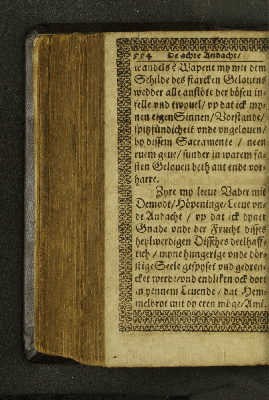 554 De achte Andacht/
wandels? Wapene my mit dem
Schilde des starcken Gelouens
wedder alle anstöte der bösen in-
felle vnd twyuel/ vp dat ick my-
nen eigen Sinnen/ Vorstande/
spitzfündicheit vnde vngelouen/
by dissem Sacramente / neen
ruem geue/ sunder in warem fa-
sten Gelouen beth ant ende vor-
harre.
Zyre my leeue Vader mit
Demodt/ Höpeninge/ Leeue vn-
de Andacht / vp dat ick dyner
Gnade vnde der Frucht disses
heylwerdigen Dissches deelhaff-
tich / myne hungerige vnde dör-
stige Seele gespyset vnd gedren-
cket werde/ vnd endliken ock dort
in yennem Leuende / dat Hem-
melbrot mit dy eten möge/ Amē.